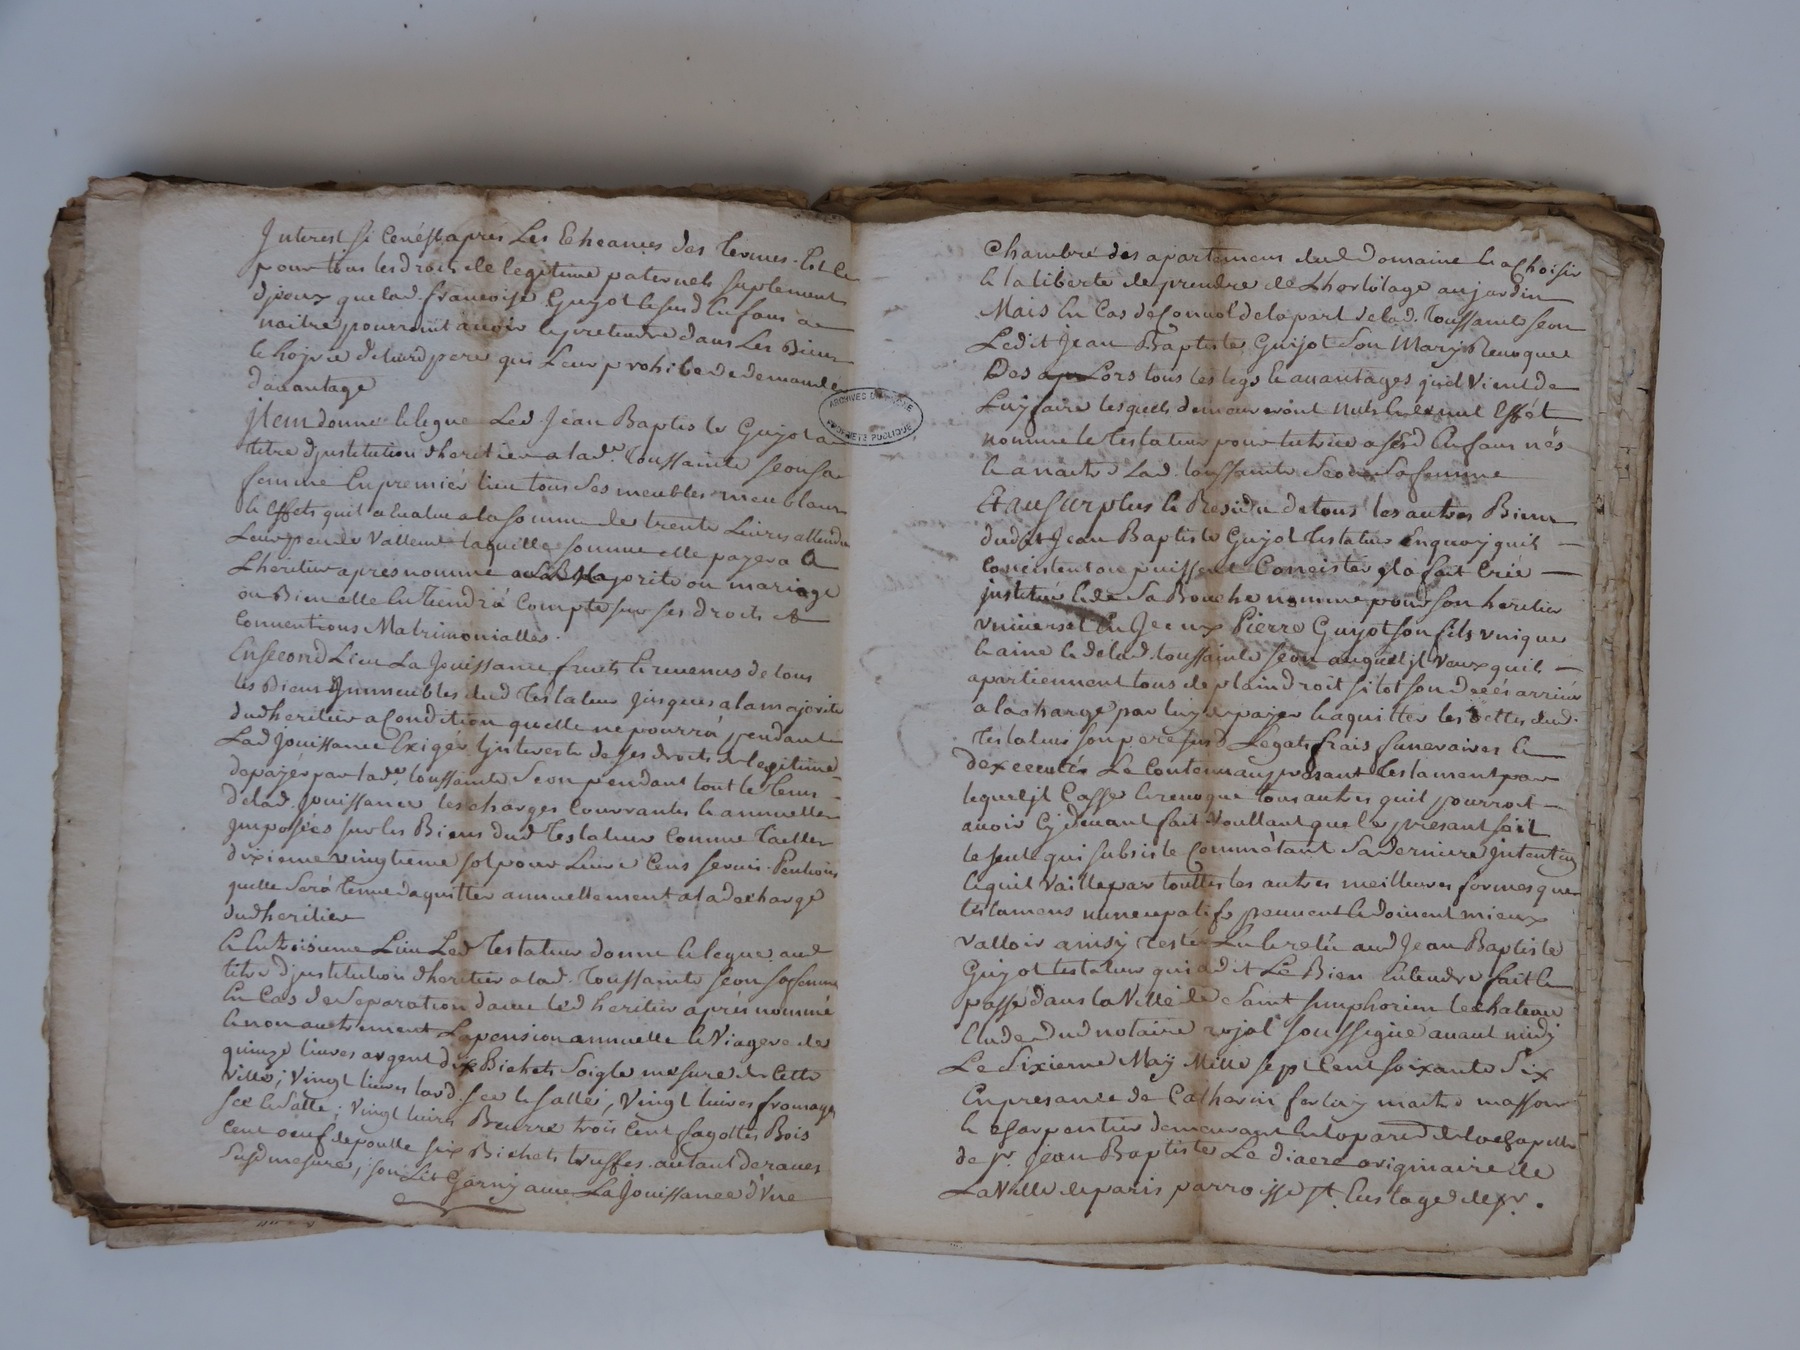 Interest si ce nést apres Les Echeances des termes. Et ce
pour tous les droits de legitime paternels suplement
d'jceux que lad. francoise Guyot lesusd Enfans a
naitre pourront avoir le pretendre dans Les Biens
le hojrie deleurd pere qui Leur prohibe de demander
davantage
jtem donne le legue Led. Jean Baptiste Guyot a
titre d'jnstitution dheritier a lad.e toussainte seon sa
femme En premier lieu tous ses meubles meublans
le Effets quil a Evalue a la somme de trente Livres attendu
Leur peu de Valleur laquelle somme elle payera a
Lheritier apres nomme a sa Majorite ou mariage
ou Bien elle En tiendra Compte sur ses droits et
Conventions Matrimonialles.
En second Lieu La Jouissance fruits le revenus de tous
les Biens jmmeubles dud Testateur jusques a la majorite
dud heritier a Condition quelle ne pourra pendant
Lad Jouissance Exiger linterest de ses droits de legitime
de payer par lad.e toussainte Seon pendant tout le tems
de lad. Jouissance les charges Courrantes le annuelles
jmposées sur les Biens dud Testateur Comme tailles
dixieme vingtieme sol pour Livre Cens servis Pentions
quelle sera tenue daquitter annuellement a la decharge
dud heritier
le En troisieme Lieu Led Testateur donne le legue aud
titre d'jnstitution dheritier a lad. Toussainte seon sa femme
En Cas de Separation davec led heritier aprés nommé
le non autrement La pension annuelle le Viagere de
quinze livres argent dix Bichets Soigle mesure de Cette
Ville; Vingt livres lard. sec le sallé; Vingt livres fromage
sec le sallé; Vingt livres Beurre trois Cent fagottes Bois
Cent oeuf de poulle six Bichets truffes autant de raves
Susd mesure; son Lit Garny avec La Jouissance d'Une
Chambre des apartemens dud Domaine le a Choisir
le la liberte de prendre de Lhortolage au jardin
Mais En Cas de Convol de la part de lad. Toussainte seon
Ledit Jean Baptiste Guyot Son Mary Revoque
Des Lors tous les legs le avantages quil Vient de
Luy faire lesquels demeureront Nuls le de nul Effét
nomme le Testateur pour tutrice a sésd Enfans nés
le a naitre Lad toussainte Seon Sa femme
Et au Surplus le Residu de tous les autres Biens
dudit Jean Baptiste Guyot Testateur En quoy quils
Concistent ou puissent Concister jl a fait Créé
jnstitué le de Sa Bouche nomme pour son heritier
vniversel En Jceux Pierre Guyot son fils vnique
le aine le de lad. toussainte seon auquel jl Veux quils
apartiennent tous de plain droit sitot son Decés arrivé
a la charge par luy de payer le aquitter les dettes dud.
Testateur son pere susd Legats frais funeraires le
dexecuter Le Contenu au present testament par
lequel jl Casse le revoque tous autres quil pourroit
avoir Cy devant fait Voullant que le presant soit
le seul qui subsiste Comme étant Sa derniere jntention
le quil Vaille par touttes les autres meilleures formes que
testamens nuncupatifs peuvent le doivent mieux
valloir ainsy Testé Lu le relu aud Jean Baptiste
Guyot testateur qui a dit Le Bien Entendre fait le
passé dans la Ville de Saint simphorien le chateau
Etude dud notaire royal soussigné avant midy
Le Sixieme May Mille sept Cent soixante Six
En presance de Catherin ferluy maitre masson
le charpentier demeurant En la parr de la chapelle
de Sr. Jean Baptiste Le diacre originaire de
La Ville de paris parroisse St. Eustage de pr.
PROPRIÉTÉ PUBLIQUE